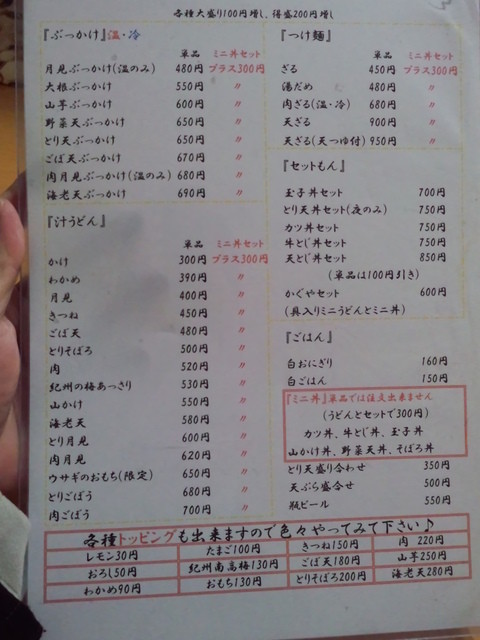 各種大盛り100円増し、得盛200円増し
『ぶっかけ』温・冷
単品 ミニ丼セット
月見ぶっかけ(温のみ) 480円 プラス300円
大根ぶっかけ 550円 〃
山芋ぶっかけ 600円 〃
野菜天ぶっかけ 650円 〃
とり天ぶっかけ 650円 〃
ごぼ天ぶっかけ 670円 〃
肉月見ぶっかけ(温のみ) 680円 〃
海老天ぶっかけ 690円 〃
『汁うどん』
単品 ミニ丼セット
かけ 300円 プラス300円
わかめ 390円 〃
月見 400円 〃
きつね 450円 〃
ごぼ天 480円 〃
とりそぼろ 500円 〃
肉 520円 〃
紀州の梅あっさり 530円 〃
山かけ 550円 〃
海老天 580円 〃
とり月見 600円 〃
肉月見 620円 〃
ウサギのおもち(限定) 650円 〃
とりごぼう 680円 〃
肉ごぼう 700円 〃
『つけ麺』
単品 ミニ丼セット
ざる 450円 プラス300円
湯だめ 480円 〃
肉ざる(温・冷) 680円 〃
天ざる 900円 〃
天ざる(天つゆ付) 950円 〃
『セットもん』
玉子丼セット 700円
とり天丼セット(夜のみ) 750円
カツ丼セット 750円
牛とじ丼セット 750円
天とじ丼セット 850円
(単品は100円引き)
かぐやセット 600円
(具入りミニうどんとミニ丼)
『ごはん』
白おにぎり 160円
白ごはん 150円
『ミニ丼』単品では注文出来ません
(うどんとセットで300円)
カツ丼、牛とじ丼、玉子丼
山かけ丼、野菜天丼、そぼろ丼
とり天盛り合わせ 350円
天ぷら盛合せ 500円
瓶ビール 550円
各種トッピングも出来ますので色々やってみて下さい♪
レモン30円 たまご100円 きつね150円 肉 220円
おろし50円 紀州南高梅130円 ごぼ天180円 山芋250円
わかめ90円 おもち130円 とりそぼろ200円 海老天280円